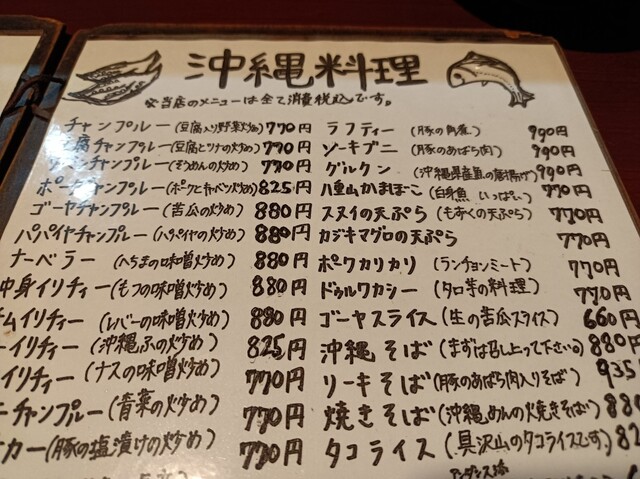 沖縄料理
当店のメニューは全て消費税込です。
チャンプルー(豆腐入り野菜炒め) 770円
腐チャンプルー(豆腐とツナの炒め) 770円
チャンプルー(そうめんの炒め) 770円
ポークチャンプルー(ポークとキャベツ炒め) 825円
ゴーヤチャンプルー(苦瓜の炒め) 880円
パパイヤチャンプルー(パパイヤの炒め) 880円
ナーベラー(へちまの味噌炒め) 880円
中身イリチィー(もつの味噌炒め) 880円
ムイリティー(レバーの味噌炒め) 880円
ーイリティー(沖縄ふの炒め) 825円
イリチィー(ナスの味噌炒め) 770円
ーチャンプルー(青菜の炒め) 770円
カー(豚の塩漬けの炒め) 770円
ラフティー(豚の角煮) 990円
ソーキブニ(豚のあばら肉) 990円
グルクン(沖縄県産魚の唐揚げ) 990円
八重山かまぼこ(白身魚 いっぱい) 770円
スヌイの天ぷら(もずくの天ぷら) 770円
カジキマグロの天ぷら 770円
ポワカリカリ(ランチョンミート) 770円
ドゥルワカシー(タロ芋の料理) 770円
ゴーヤスライス(生の苦瓜スライス) 660円
沖縄そば(まずは召し上って下さい) 880円
ソーキそば(豚のあばら肉入りそば) 935
焼きそば(沖縄めんの焼きそば) 880
タコライス(具沢山のタコライスです) 82